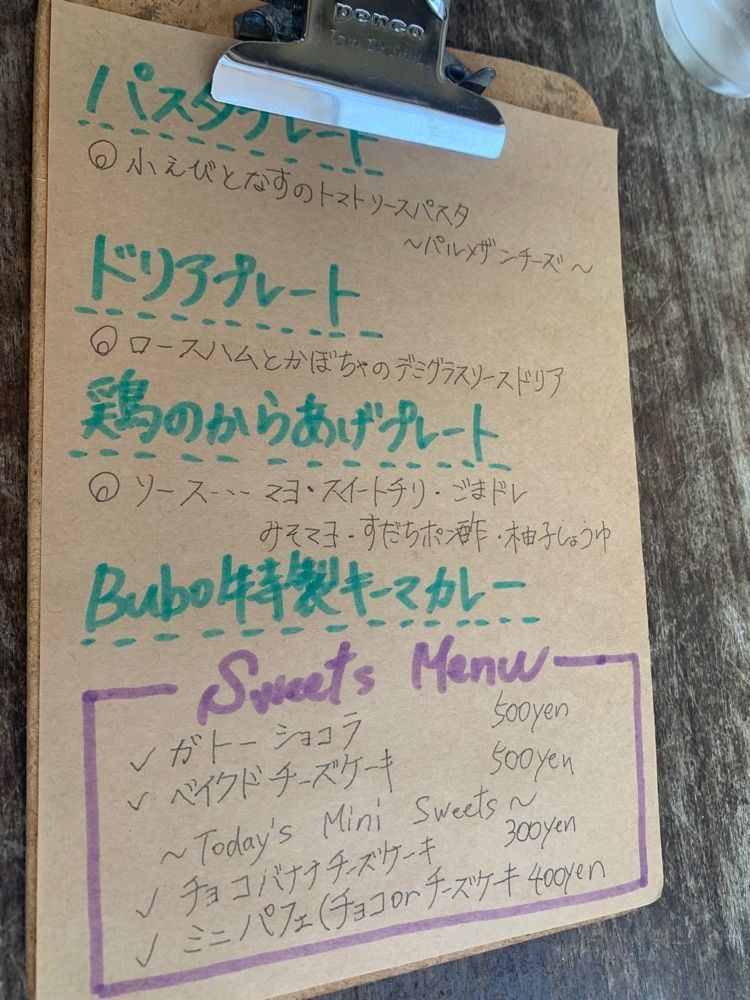 penco
パスタプレート
◎ 小えびとなすのトマトソースパスタ
～パルメザンチーズ～
ドリアプレート
◎ ロースハムとかぼちゃのデミグラスソースドリア
鶏のからあげプレート
◎ ソース… マヨ・スイートチリ・ごまドレ
みそマヨ・すだちポン酢・柚子しょうゆ
Bubo特製キーマカレー
Sweets Menu
✓ ガトーショコラ 500yen
✓ ベイクドチーズケーキ 500yen
～Today's Mini Sweets～
✓ チョコバナナチーズケーキ 300yen
✓ ミニパフェ(チョコorチーズケーキ 400yen